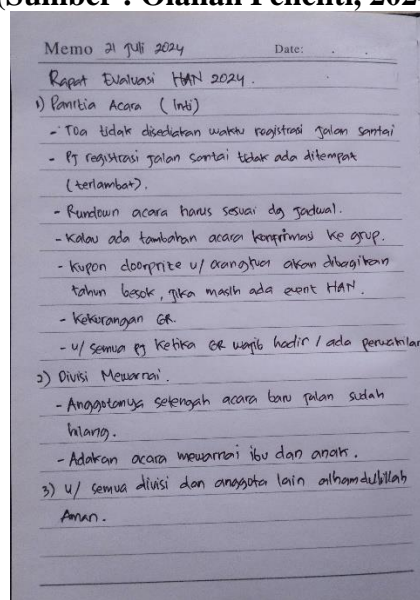 (Sumber : Olahan Peneliti, 202
Memo 21 Juli 2024 Date: . .
Rapat Evaluasi HAN 2024.
1) Panitia Acara (Inti)
- Toa tidak disediakan waktu registrasi jalan santai
- PJ registrasi jalan santai tidak ada ditempat
(terlambat).
- Rundown acara harus sesuai dg jadwal.
- Kalau ada tambahan acara konfirmasi ke grup.
- Kupon doorprize u/ orangtua akan dibagikan
tahun besok, jika masih ada event HAN.
- Kekurangan GR.
- u/ semua PJ ketika GR wajib hadir / ada perwakilan
2) Divisi Mewarnai.
- Anggotanya setengah acara baru jalan sudah
hilang.
- Adakan acara mewarnai ibu dan anak.
3) u/ semua divisi dan anggota lain alhamdulillah
Aman.